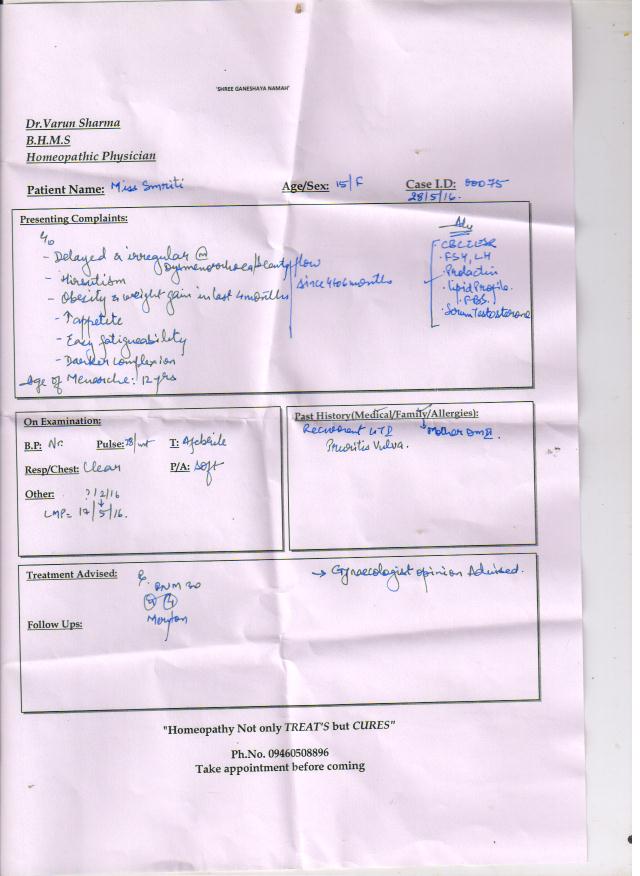 'SHREE GANESHAYA NAMAH'
Dr.Varun Sharma
B.H.M.S
Homeopathic Physician
Patient Name: Miss Smriti Age/Sex: 15/F Case I.D: 00075
28/5/16.
Presenting Complaints:
c/o
- Delayed & irregular (m)
Dysmenorrhoea/Scanty flow
- Hirsutism
- Obesity & weight gain in last 4 months
since 4 to 6 months
- ↑ appetite
- Easy fatigueability
- Darker complexion
Age of Menarche: 12 yrs
Adv
- CBC, ESR
- FSH, LH
- Prolactin
- Lipid Profile.
- FBS.
- Serum Testosterone
On Examination:
B.P: Nr. Pulse: 78/mt T: Afebrile
Resp/Chest: Clear P/A: Soft
Other: ?/2/16
LMP= 17/5/16.
Past History(Medical/Family/Allergies):
Recurrent Mother DM II.
Pruritis Vulva.
Treatment Advised:
→ Gynaecologist opinion Advised.
30
Follow Ups:
"Homeopathy Not only TREAT'S but CURES"
Ph.No. 09460508896
Take appointment before coming